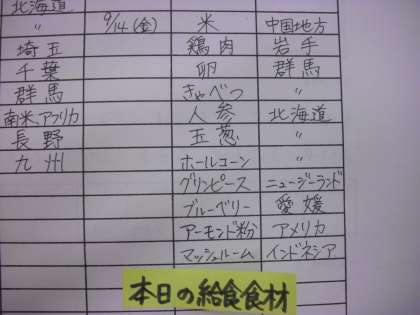 北海道
〃 9/14(金) 米 中国地方
埼玉 鶏肉 岩手
千葉 卵 群馬
群馬 きゃべつ 〃
南米、アフリカ 人参 北海道
長野 玉葱 〃
九州 ホールコーン 〃
グリンピース ニュージーランド
ブルーベリー 愛媛
アーモンド粉 アメリカ
マッシュルーム インドネシア
本日の給食食材